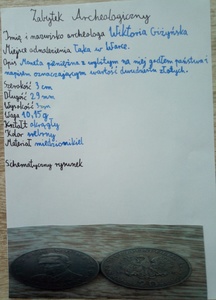 Zabytek Archeologiczny
Imię i nazwisko archeologa Wiktoria Giżyńska
Miejsce odnalezienia Łąka w Warce.
Opis Moneta pieniężna z wybitym na niej godłem państwa i
napisem oznaczającym wartość dwudziestu złotych.
Szerokość 3 cm
Długość 2,9 mm
Wysokość 3 mm
Waga 10,15 g
Kształt okrągły
Kolor srebrny
Materiał miedzionikiel
Schematyczny rysunek